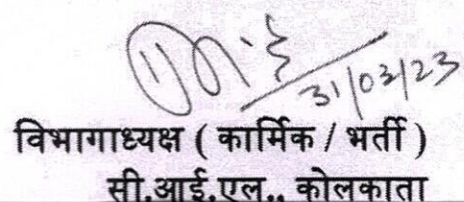 31/03/23
विभागाध्यक्ष ( कार्मिक / भर्ती )
सी.आई.एल., कोलकाता